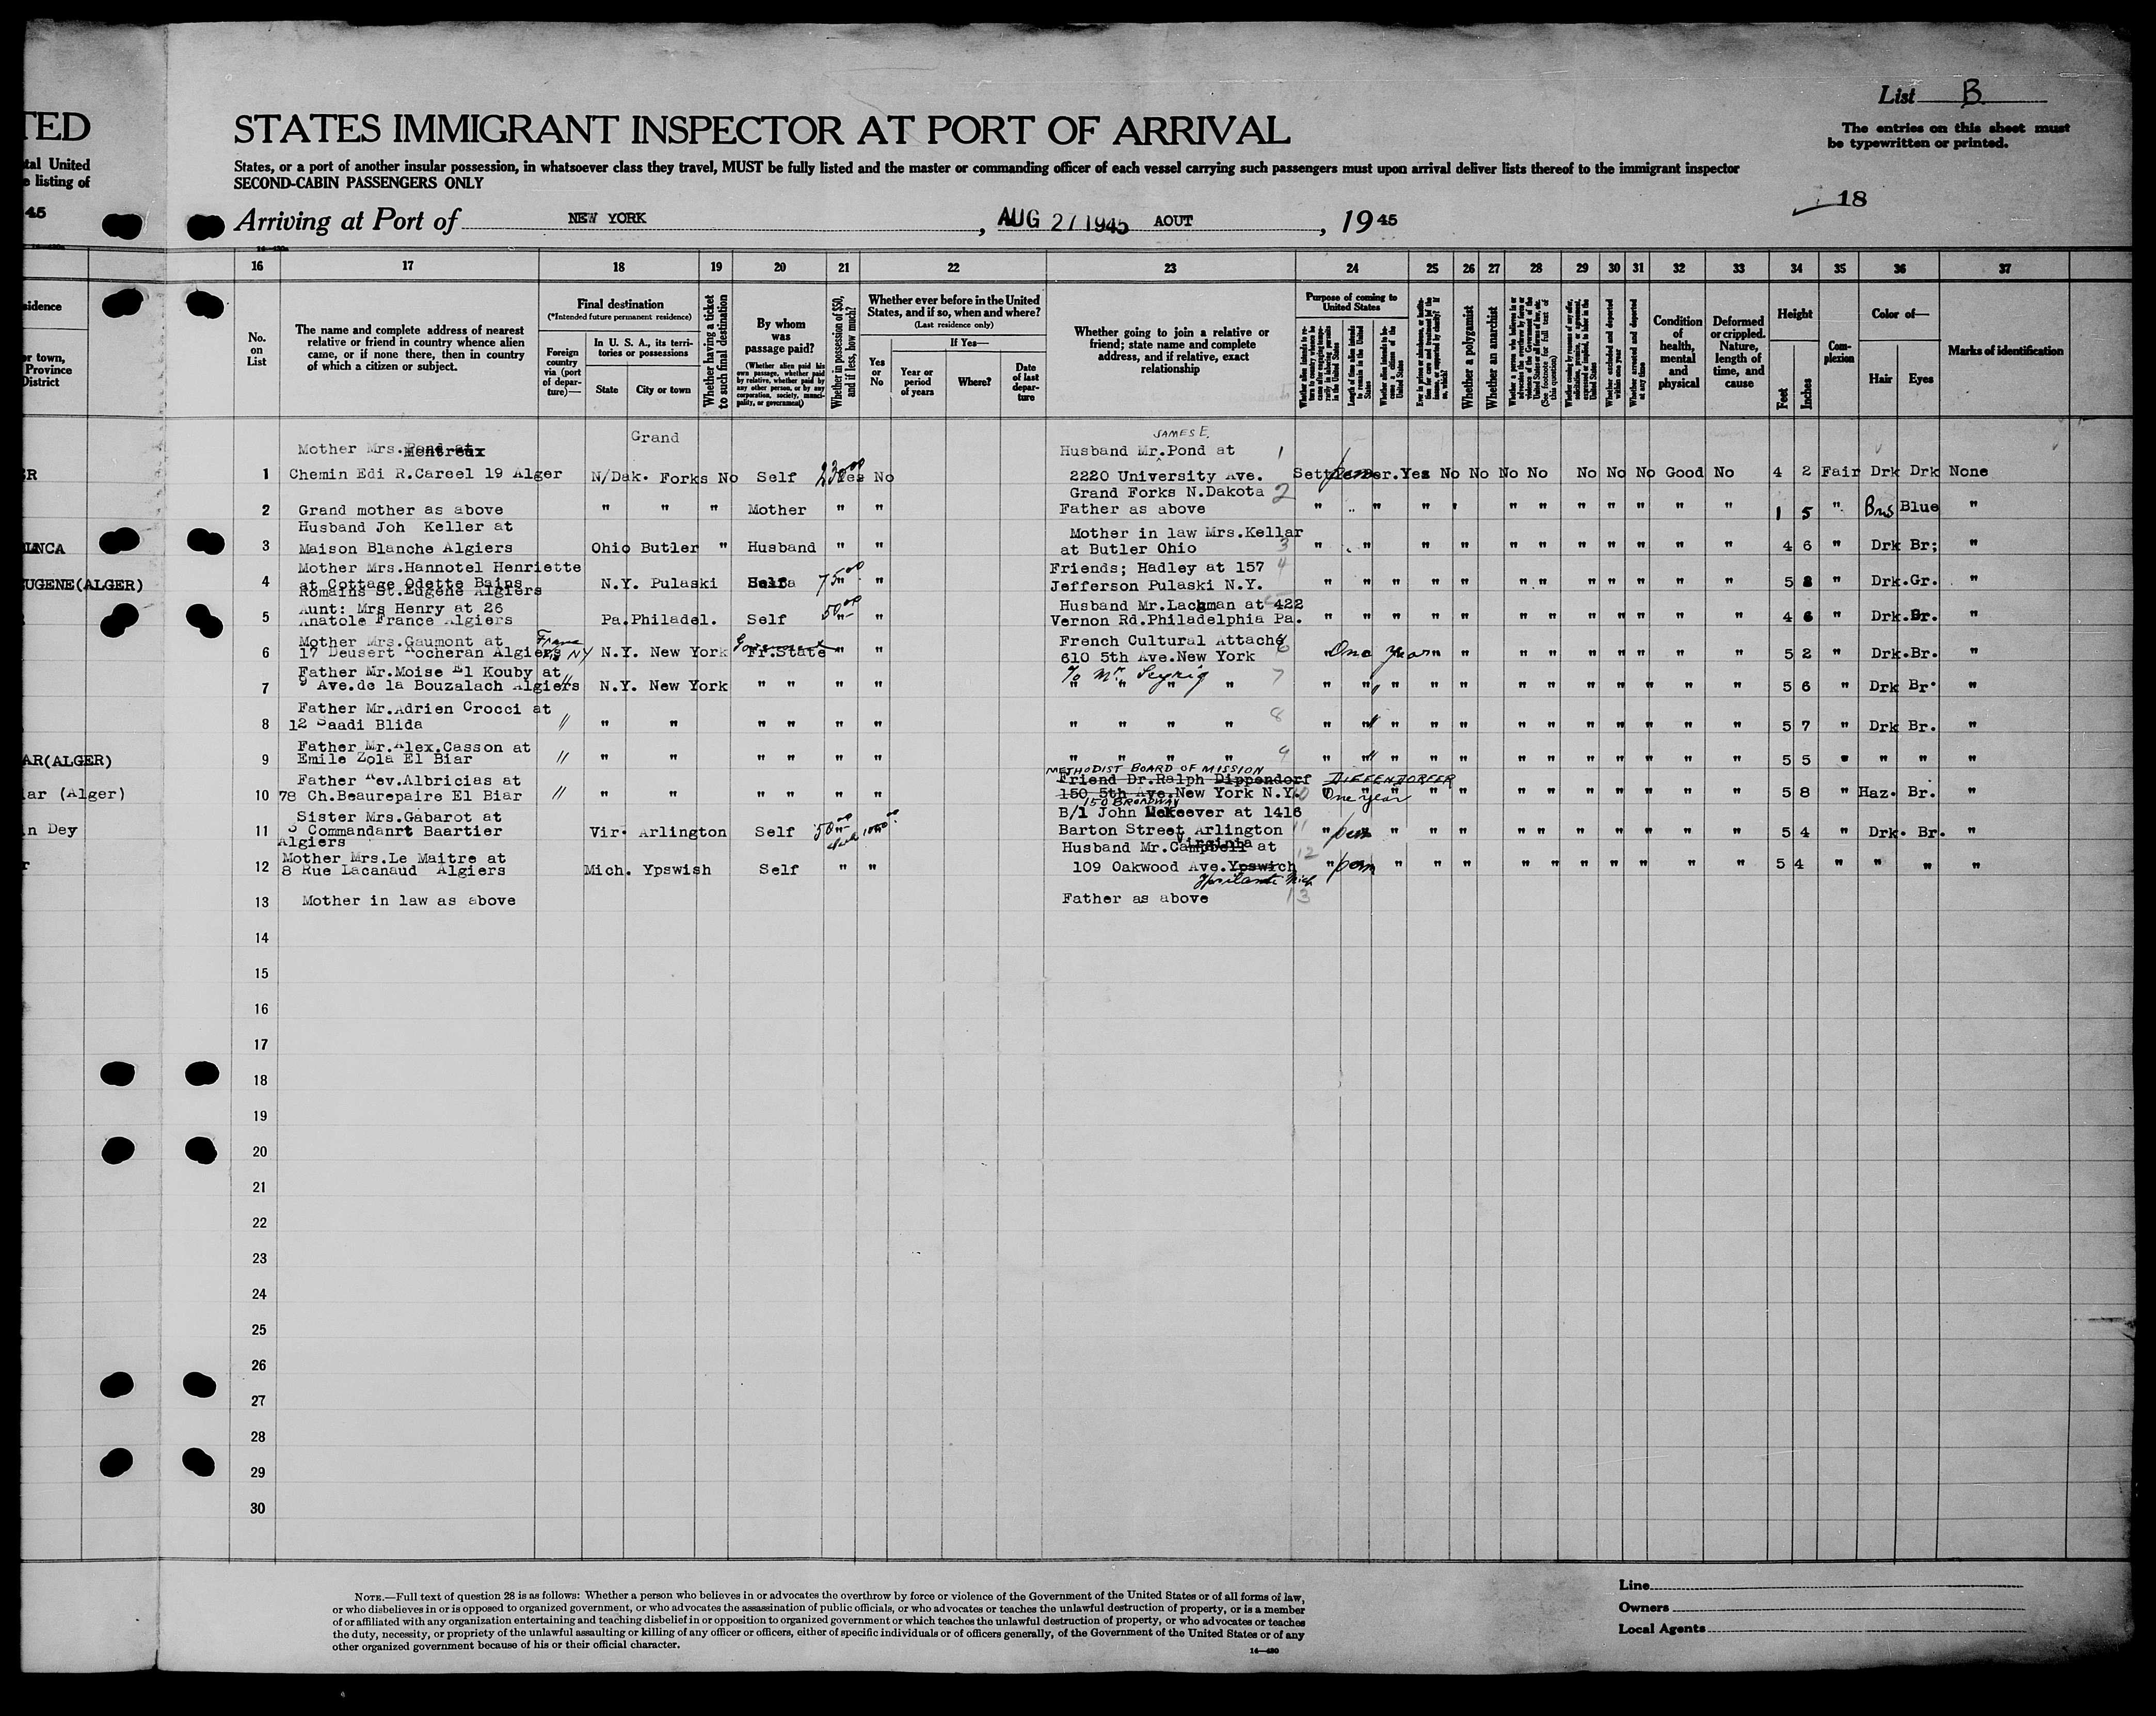 List B
TED
STATES IMMIGRANT INSPECTOR AT PORT OF ARRIVAL
The entries on this sheet must
be typewritten or printed.
tal United
States, or a port of another insular possession, in whatsoever class they travel, MUST be fully listed and the master or commanding officer of each vessel carrying such passengers must upon arrival deliver lists thereof to the immigrant inspector
e listing of
SECOND-CABIN PASSENGERS ONLY
18
45
Arriving at Port of NEW YORK, AUG 27 1945 AOUT, 19 45
16 17 18 19 20 21 22 23 24 25 26 27 28 29 30 31 32 33 34 35 36 37
sidence
or town,
Province
District
No.
on
List
The name and complete address of nearest
relative or friend in country whence alien
came, or if none there, then in country
of which a citizen or subject.
Final destination
(*Intended future permanent residence)
Foreign
country
via (port
of depar-
ture)—
In U. S. A., its terri-
tories or possessions
State
City or town
Whether having a ticket
to such final destination
By whom
was
passage paid?
(Whether alien paid his
own passage, whether paid
by relative, whether paid by
any other person, or by any
corporation, society, munici-
pality, or government)
Whether in possession of $50,
and if less, how much?
Whether ever before in the United
States, and if so, when and where?
(Last residence only)
Yes
or
No
If Yes—
Year or
period
of years
Where?
Date
of last
depar-
ture
Whether going to join a relative or
friend; state name and complete
address, and if relative, exact
relationship
Purpose of coming to
United States
Length of time alien intends
to remain in the United
States
Whether alien intends to be-
come a citizen of the
United States
Whether a polygamist
Whether an anarchist
Whether excluded and deported
within one year
Whether arrested and deported
at any time
Condition
of
health,
mental
and
physical
Deformed
or crippled.
Nature,
length of
time, and
cause
Height
Feet
Inches
Com-
plexion
Color of—
Hair
Eyes
Marks of identification
Grand JAMES E.
Mother Mrs. Montreux Husband Mr. Pond at 1
R 1 Chemin Edi R.Careel 19 Alger N/Dak. Forks No Self 2300 Yes No 2220 University Ave. Settle Per. Yes No No No No No No No Good No 4 2 Fair Drk Drk None
Grand Forks N.Dakota 2
2 Grand mother as above " " " Mother " " Father as above " " " " " " " " " " " " 1 5 " Brns Blue "
Husband Joh Keller at Mother in law Mrs.Kellar
ANCA 3 Maison Blanche Algiers Ohio Butler " Husband " " at Butler Ohio 3 " " " " " " " " " " " 4 6 " Drk Br; "
Mother Mrs.Hannotel Henriette Friends; Hadley at 157 4
UGENE(ALGER) 4 at Cottage Odette Bains N.Y. Pulaski Self 75.00 " " Jefferson Pulaski N.Y. " " " " " " " " " " " 5 8 " Drk.Gr. "
Romains St.Eugene Algiers
Aunt: Mrs Henry at 26 Husband Mr.Lachman at 422
5 Anatole France Algiers Pa.Philadel. Self 50.00 " " Vernon Rd.Philadelphia Pa. " " " " " " " " " " " 4 6 " Drk.Br. "
Mother Mrs.Gaumont at French Cultural Attaché 6
6 17 Deusert Rocheran Algiers N.Y. New York Fr.State " " 610 5th Ave.New York " One year " " " " " " " " " 5 2 " Drk.Br. "
Father Mr.Moise El Kouby at c/o Mr. Seyrig 7
7 9 Ave.de la Bouzalach Algiers N.Y. New York " " " " " " " " " " " " " " " " " " 5 6 " Drk Br. "
Father Mr.Adrien Crocci at 8
8 12 Saadi Blida // " " " " " " " " " " " " " " " " " " " " 5 7 " Drk Br. "
Father Mr.Alex.Casson at 9
AR(ALGER) 9 Emile Zola El Biar // " " " " " " " " " " " " " " " " " " " " 5 5 " " " "
METHODIST BOARD OF MISSION
Father Rev.Albricias at Friend Dr.Ralph Dippendorf DIEFFENDORFER
iar (Alger) 10 78 Ch.Beaurepaire El Biar // " " " " " " 150 5th Ave.New York N.Y. 10 One year " " " " " " " " " 5 8 " Haz. Br. "
150 BROADWAY
Sister Mrs.Gabarot at B/l John McKeever at 1416
n Dey 11 5 Commandanrt Baartier Vir. Arlington Self 50.00 Barton Street Arlington 11 " perm " " " " " " " " " " 5 4 " Drk. Br. "
Algiers Virginia
Husband Mr.Campbell at
Mother Mrs.Le Maitre at 12
12 8 Rue Lacanaud Algiers Mich. Ypswish Self " " 109 Oakwood Ave.Ypswich " perm " " " " " " " " " " 5 4 " " " "
Ypsilanti Mich
13 Mother in law as above Father as above 13
14
15
16
17
18
19
20
21
22
23
24
25
26
27
28
29
30
NOTE.—Full text of question 28 is as follows: Whether a person who believes in or advocates the overthrow by force or violence of the Government of the United States or of all forms of law,
or who disbelieves in or is opposed to organized government, or who advocates the assassination of public officials, or who advocates or teaches the unlawful destruction of property, or is a member
of or affiliated with any organization entertaining and teaching disbelief in or opposition to organized government or which teaches the unlawful destruction of property, or who advocates or teaches
the duty, necessity, or propriety of the unlawful assaulting or killing of any officer or officers, either of specific individuals or of officers generally, of the Government of the United States or of any
other organized government because of his or their official character.
14—430
Line
Owners
Local Agents